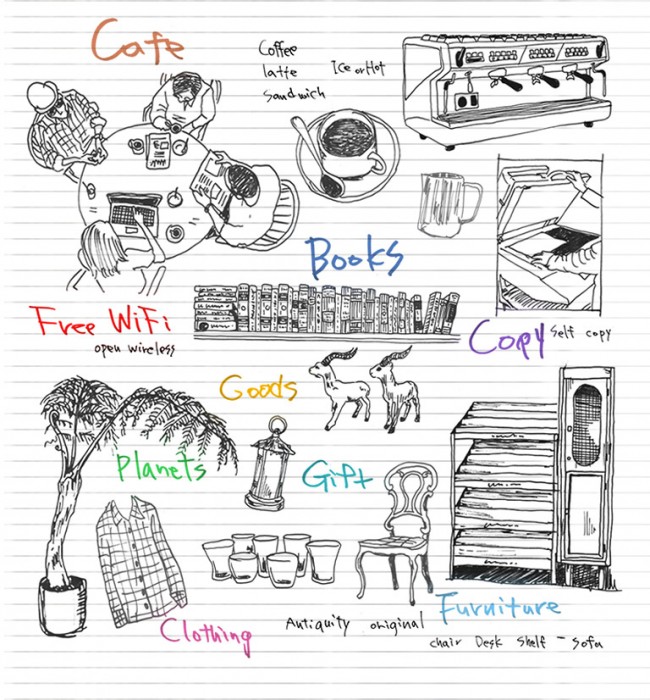 Cafe
Coffee
latte
Sandwich
Ice or Hot
Books
Free WiFi
open wireless
Copy
Self copy
Goods
Planets
Gift
Clothing
Antiquity original
Furniture
chair Desk shelf - sofa